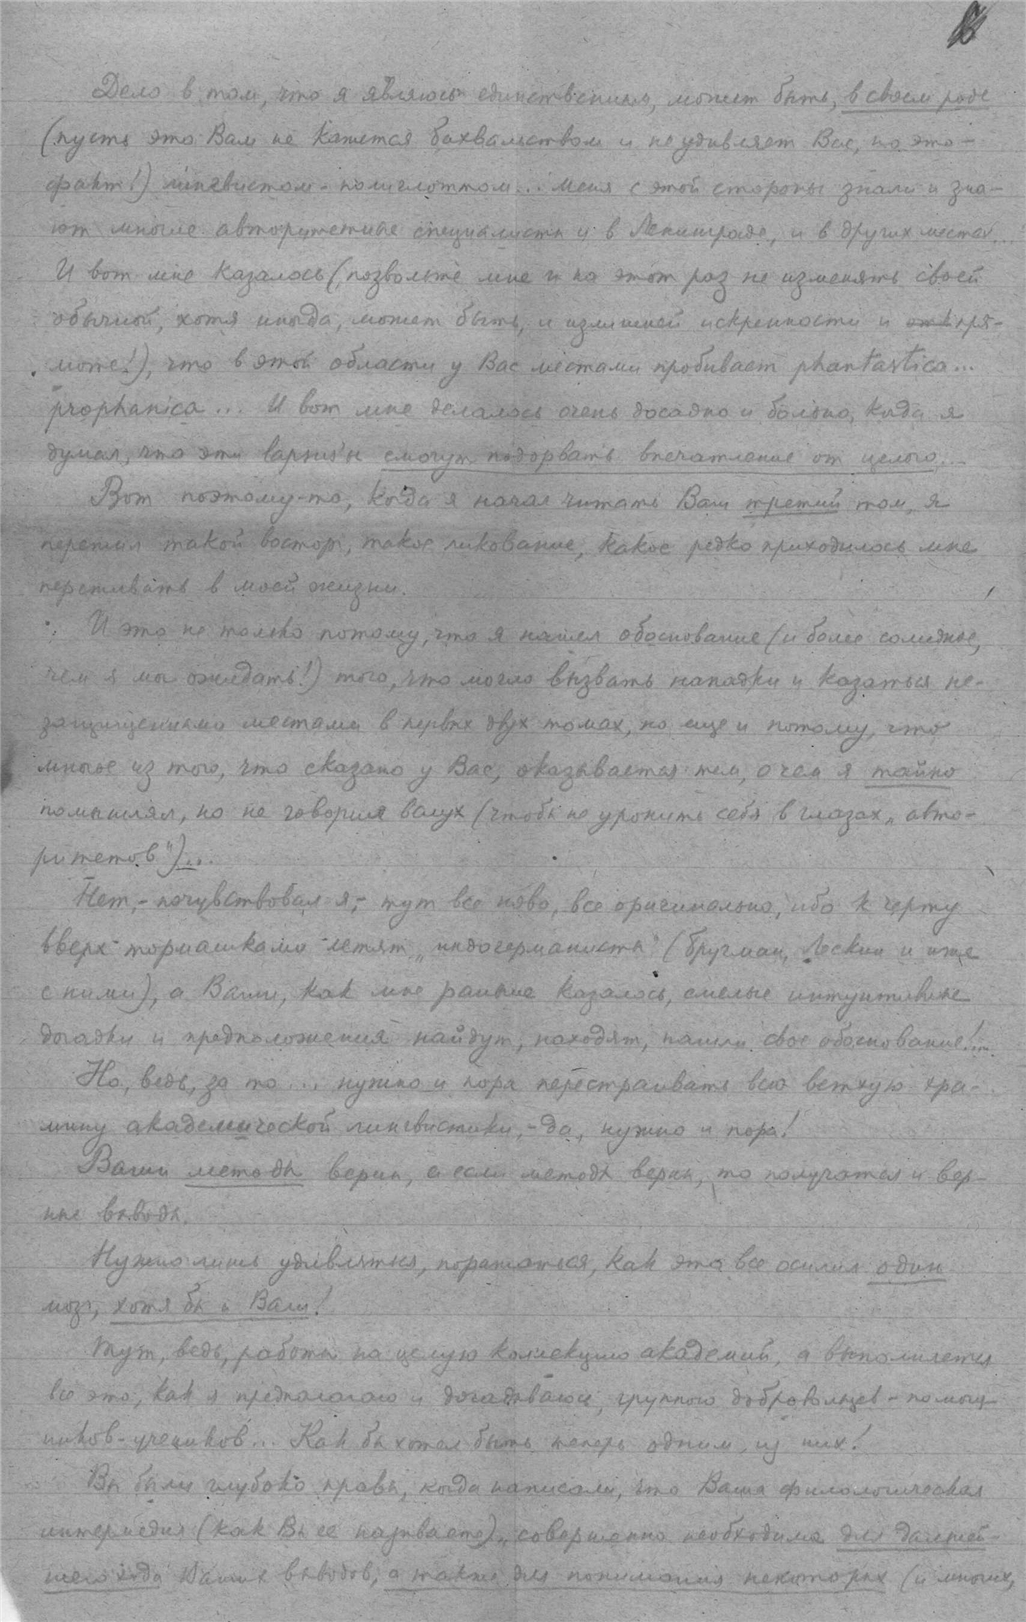 Дело в том, что я являюсь единственным, может быть, в своем роде
(пусть это Вам не кажется бахвальством и не удивляет Вас, но это –
факт!) лингвистом-полиглотом... Меня с этой стороны знали и зна-
ют многие авторитетные специалисты и в Ленинграде, и в других местах...
И вот мне казалось (позвольте мне и на этот раз не изменять своей
обычной, хотя иногда, может быть, и излишней искренности и пря-
моте!), что в этой области у Вас местами пробивает phantastica...
prophanica... И вот мне делалось очень досадно и больно, когда я
думал, что эти lapsus'ы смогут подорвать впечатление от целого...
Вот поэтому-то, когда я начал читать Ваш третий том, я
пережил такой восторг, такое ликование, какое редко приходилось мне
переживать в моей жизни.
И это не только потому, что я нашел обоснование (и более солидное,
чем я мог ожидать!) того, что могло вызвать нападки и казаться не-
защищенными местами в первых двух томах, но еще и потому, что
многое из того, что сказано у Вас, оказывается тем, о чем я тайно
помышлял, но не говорил вслух (чтобы не уронить себя в глазах „авто-
ритетов")...
Нет, – почувствовал я, – тут все ново, все оригинально, ибо к черту
вверх тормашками летят „индогерманисты" (Бругман, Лескин и иже
с ними), а Ваши, как мне раньше казалось, смелые интуитивные
догадки и предположения найдут, находят, нашли свое обоснование!...
Но, ведь, за то... нужно и пора перестраивать всю ветхую хра-
мину академической лингвистики, – да, нужно и пора!
Ваши методы верны, а если методы верны, то получатся и вер-
ные выводы.
Нужно лишь удивляться, поражаться, как это все осилил один
мозг, хотя бы и Ваш!
Тут, ведь, работы на целую коллекцию академий, а выполняется
все это, как я предполагаю и догадываюсь, группою добровольцев-помощ-
ников-учеников... Как бы хотел быть теперь одним из них!
Вы были глубоко правы, когда написали, что Ваша филологическая
интермедия (как Вы ее называете) „совершенно необходима для дальней-
шего хода Ваших выводов, а также для понимания некоторых (и многих,